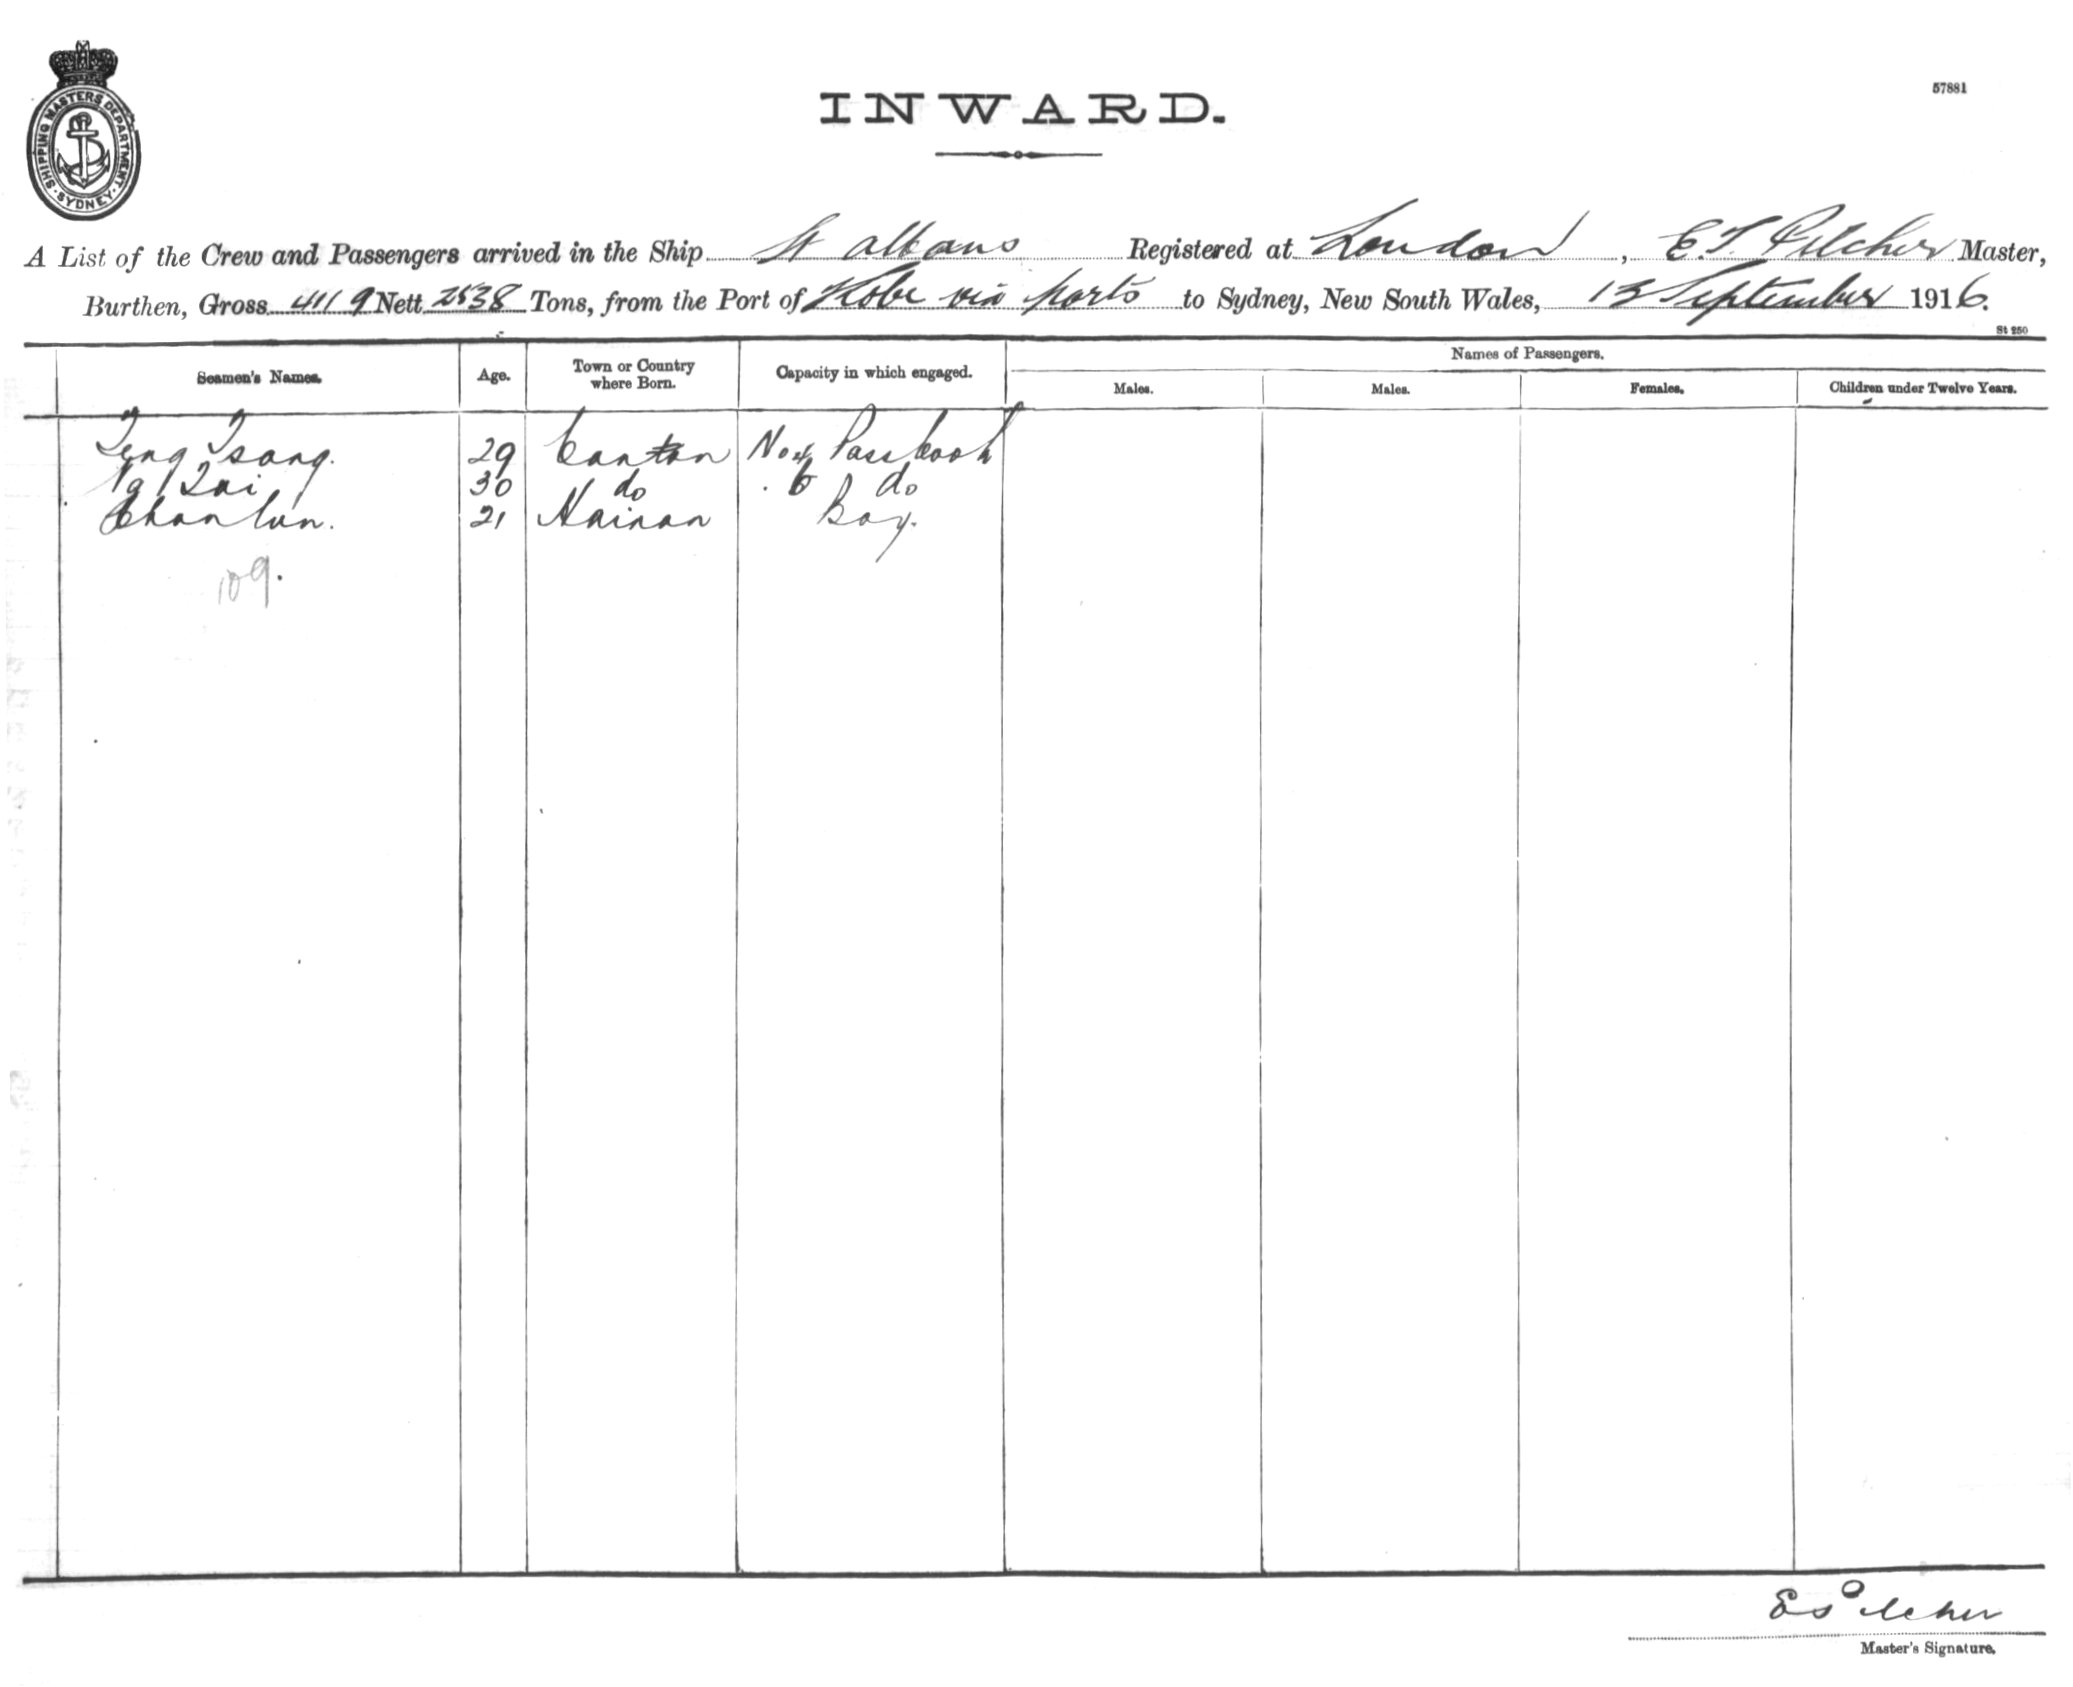 SHIPPING MASTERS DEPARTMENT · SYDNEY ·
57881
INWARD.
A List of the Crew and Passengers arrived in the Ship St Albans Registered at London, E.T. Pilcher Master,
Burthen, Gross 4119 Nett 2538 Tons, from the Port of Kobe via Ports to Sydney, New South Wales, 13 September 1916.
St 250
Seamen's Names. Age. Town or Country where Born. Capacity in which engaged. Names of Passengers.
Males. Males. Females. Children under Twelve Years.
Tsang. 29 Canton No 4 Pass cook
30 do 6 do
Chan Lun. 21 Hainan Boy.
109.
E Pilcher
Master's Signature.